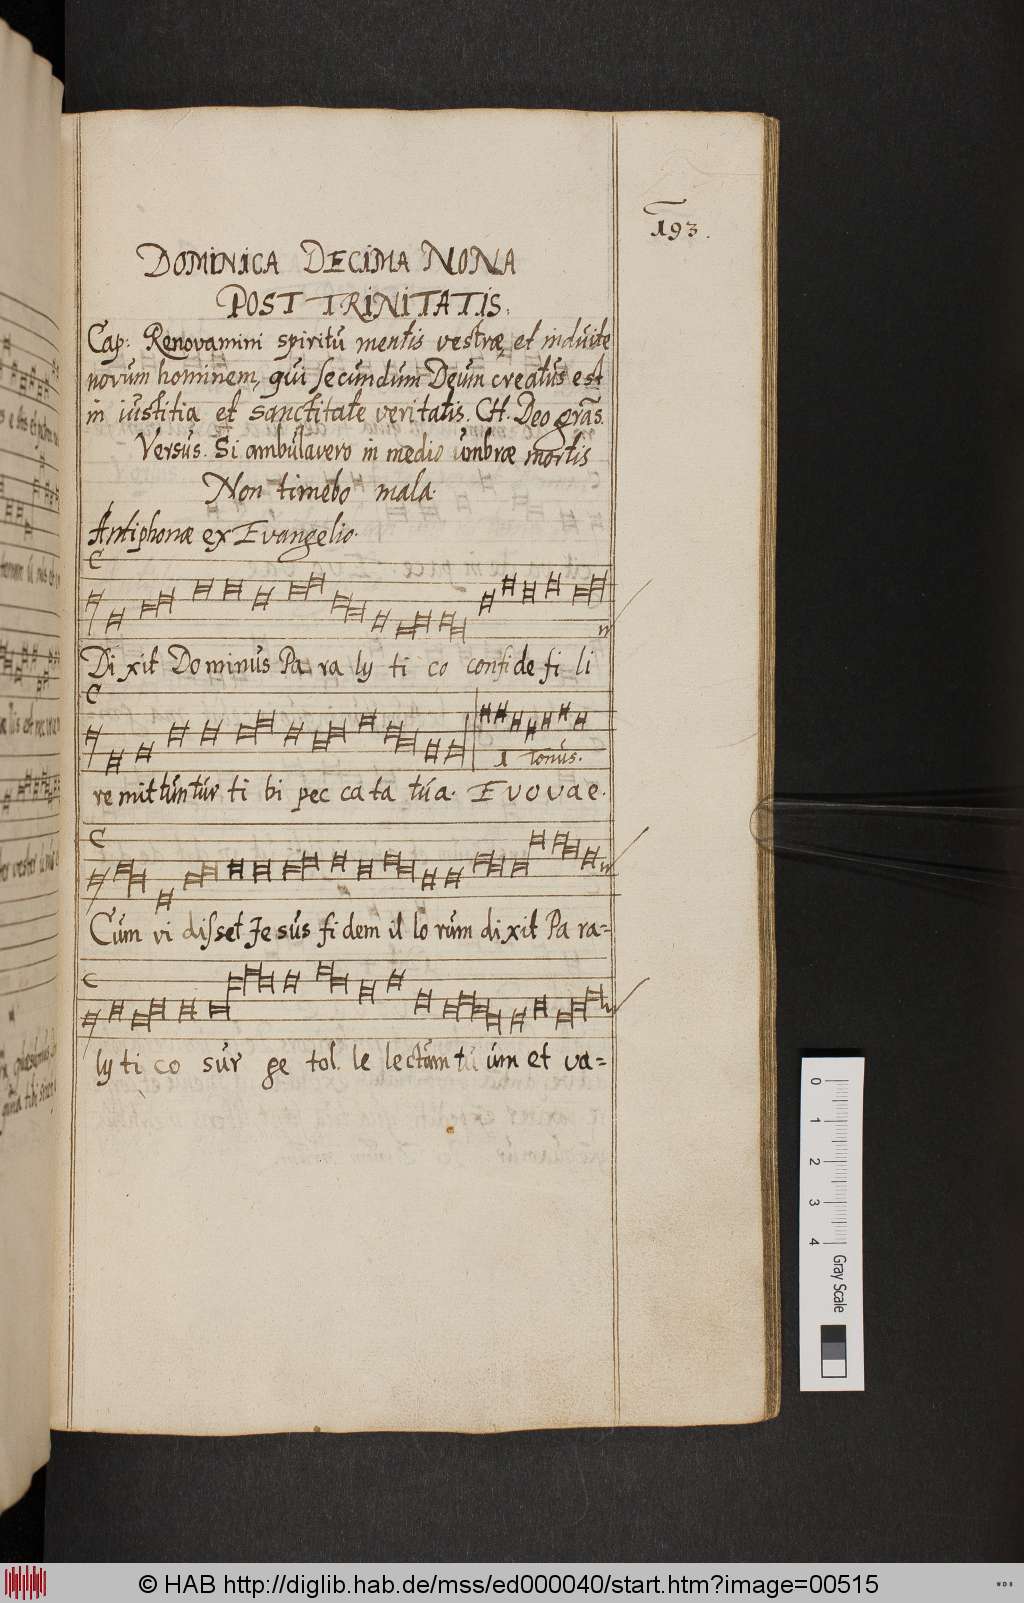 193.
DOMINICA DECIMA NONA
POST TRINITATIS.
Cap: Renovamini spiritu mentis vestræ, et induite
novum hominem, qui secundum Deum creatus est
in iustitia et sanctitate veritatis. CH. Deo gras.
Versus. Si ambulavero in medio umbræ mortis
Non timebo mala.
Antiphonæ ex Evangelio.
Di xit Do minus Pa ra ly ti co confi de fi li
1 Tonus.
re mittuntur ti bi pec ca ta tua. E v o v a e.
Cum vi disset Je sus fi dem il lo rum di xit Pa ra=
ly ti co sur ge tol le lectum tu um et va=
0 1 2 3 4
Gray Scale
© HAB http://diglib.hab.de/mss/ed000040/start.htm?image=00515